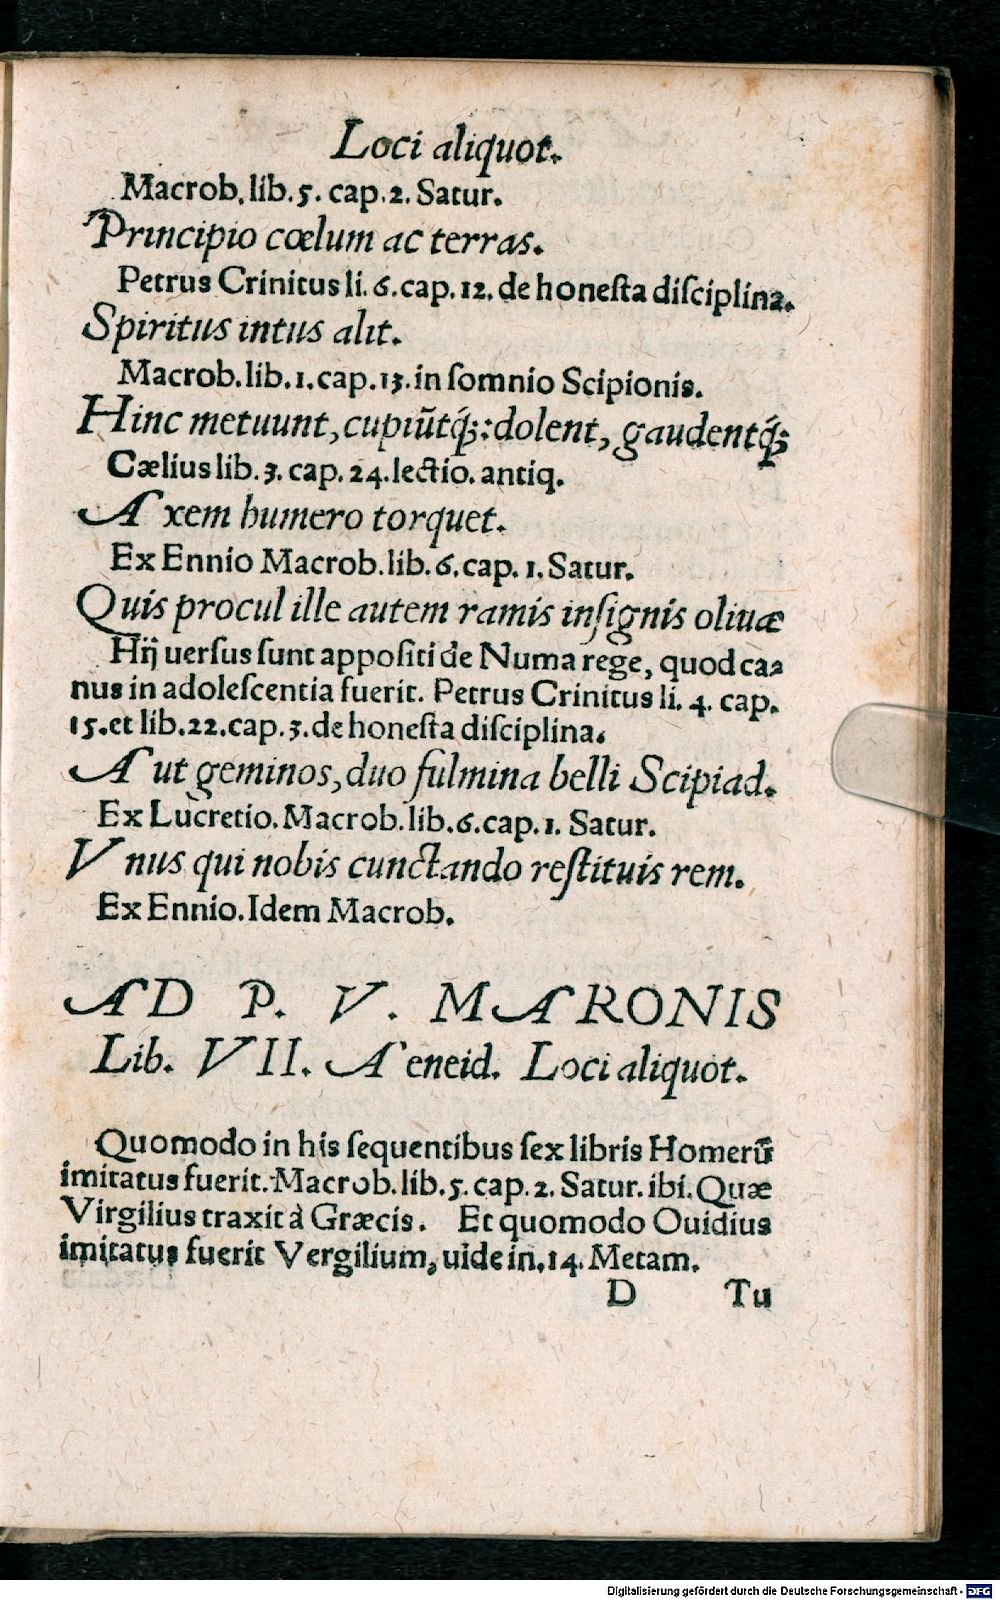 Loci aliquot.
Macrob. lib. 5. cap. 2. Satur.
Principio cœlum ac terras.
Petrus Crinitus li. 6. cap. 12. de honeſta diſciplina.
Spiritus intus alit.
Macrob. lib. 1. cap. 13. in ſomnio Scipionis.
Hinc metuunt, cupiũtq́;: dolent, gaudentq́;
Cælius lib. 3. cap. 24. lectio. antiq.
Axem humero torquet.
Ex Ennio Macrob. lib. 6. cap. 1. Satur.
Quis procul ille autem ramis inſignis oliuæ
Hij uerſus ſunt appoſiti de Numa rege, quod ca⸗
nus in adoleſcentia fuerit. Petrus Crinitus li. 4. cap.
15. et lib. 22. cap. 3. de honeſta diſciplina.
Aut geminos, duo fulmina belli Scipiad.
Ex Lucretio. Macrob. lib. 6. cap. 1. Satur.
Vnus qui nobis cunctando reſtituis rem.
Ex Ennio. Idem Macrob.
AD P. V. MARONIS
Lib. VII. Aeneid. Loci aliquot.
Quomodo in his ſequentibus ſex libris Homerũ
imitatus fuerit. Macrob. lib. 5. cap. 2. Satur. ibi. Quæ
Virgilius traxit à Græcis. Et quomodo Ouidius
imitatus fuerit Vergilium, uide in. 14. Metam.
D Tu
Digitalisierung gefördert durch die Deutsche Forschungsgemeinschaft - DFG